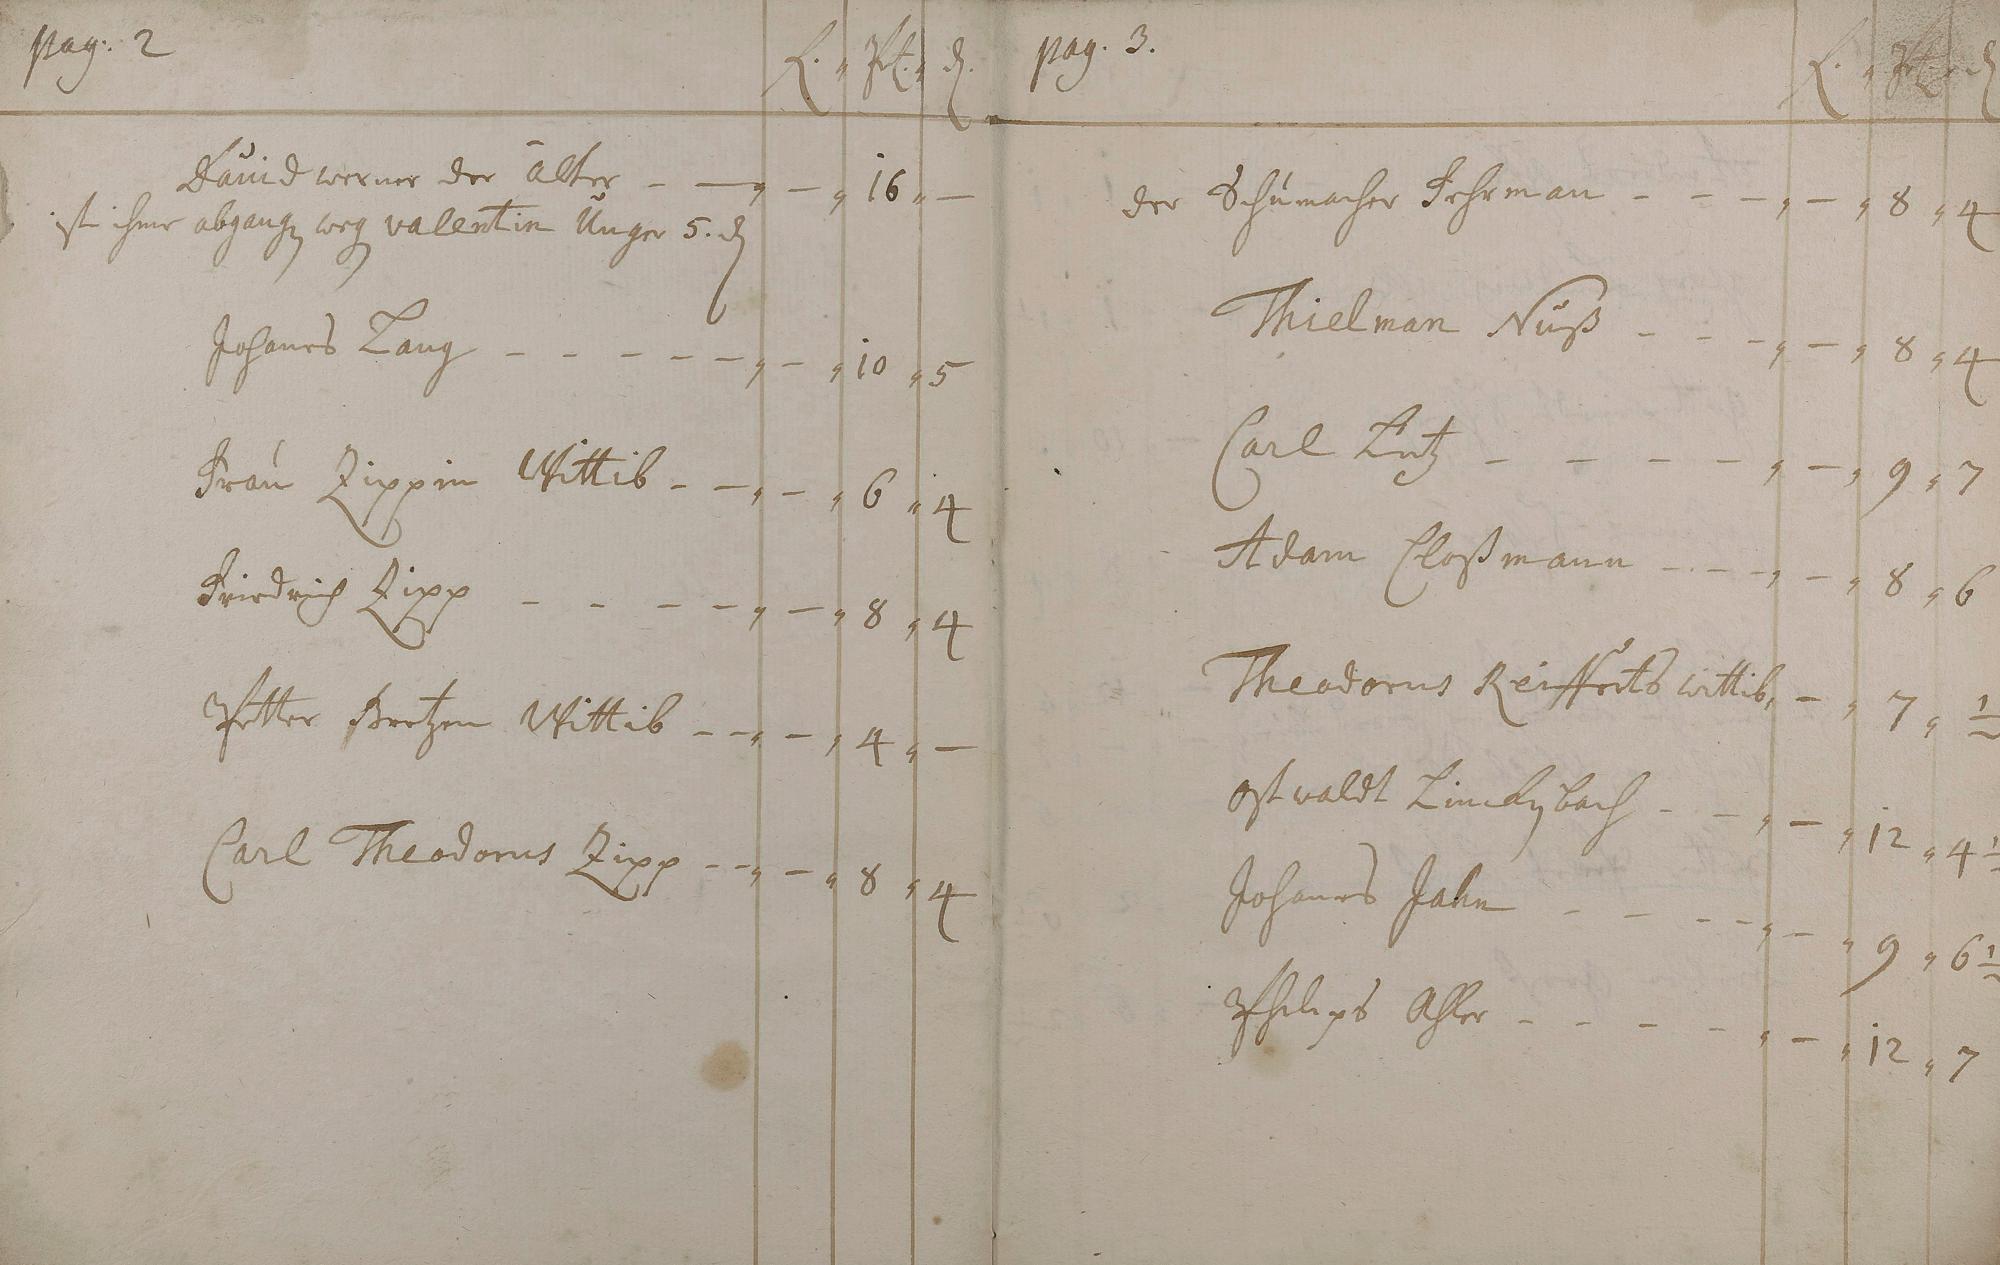 pag: 2
fl. " Xr. " d.
David werner der alter - - " - " 16 " -
ist ihme abgangen weg valentin Unger 5. d
Johanes Lang - - - - - - " - " 10 " 5
Frau Zippin Wittib - - " - " 6 " 4
Friedrich Zipp - - - - " - " 8 " 4
Petter Bretzen Wittib - - " - " 4 " -
Carl Theodorus Zipp - - " - " 8 " 4
pag. 3.
der Schumacher Fehrman - - - " - " 8 " 4
Thielman Nuß - - - " - " 8 " 4
Carl Lutz - - - - " - " 9 " 7
Adam Cloßmann - - - " - " 8 " 6
Theodorus Reiffeits wittib, - " 7 " 1/2
ostwaldt - - " - " 12 " 4 1/2
Johanes Jahn - - - - " - " 9 " 6 1/2
Philips Ahler - - - - " - " 12 " 7